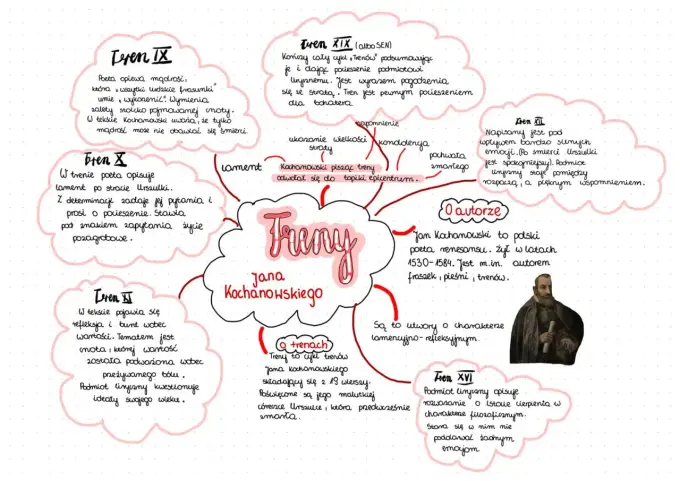 Tren IX
Poeta opiewa mądrość,
która „wszytki ludzkie frasunki"
umie „wykorzenić". Wymienia
zalety stoicko pojmowanej cnoty.
W tekście Kochanowski uważa, że tylko
mądrość może nie obawiać się śmierci.
Tren XIX (albo SEN)
Kończy cały cykl „Trenów" podsumowując
je i dając pocieszenie podmiotowi
lirycznemu. Jest wyrazem pogodzenia
się ze stratą. Tren jest pewnym pocieszeniem
dla bohatera
Napisany jest pod
wpływem bardzo silnych
emocji. (Po śmierci Urszulki
jest spokojniejszy). Podmiot
liryczny staje pomiędzy
rozpaczą, a pięknym wspomnieniem.
napomnienie
ukazanie wielkości
straty
kondolencja
pochwała
zmarłego
lament
Kochanowski pisząc treny
odwołał się do topiki epicentrum.
Tren X
W trenie poeta opisuje
lament po stracie Urszulki.
Z determinacją zadaje jej pytania i
prosi o pocieszenie. Stawia
pod znakiem zapytania życie
pozagrobowe.
Treny
Jana
Kochanowskiego
O autorze
Jan Kochanowski to polski
poeta renesansu. Żył w latach
1530-1584. Jest m.in. autorem
fraszek, pieśni, trenów.
Tren XI
W tekście pojawia się
refleksja i bunt wobec
wartości. Tematem jest
cnota, której wartość
została podważona wobec
przeżywanego bólu.
Podmiot liryczny kwestionuje
ideały swojego wieku.
o trenach
Treny to cykl trenów
Jana Kochanowskiego
składający się z 19 wierszy.
Poświęcone są jego malutkiej
córeczce Urszulce, która przedwcześnie
zmarła.
Są to utwory o charakterze
lamentacyjno-refleksyjnym.
Tren XVI
Podmiot liryczny opisuje
rozważanie o istocie cierpienia w
charakterze filozoficznym.
Stara się w nim nie
poddawać żadnym
emocjom